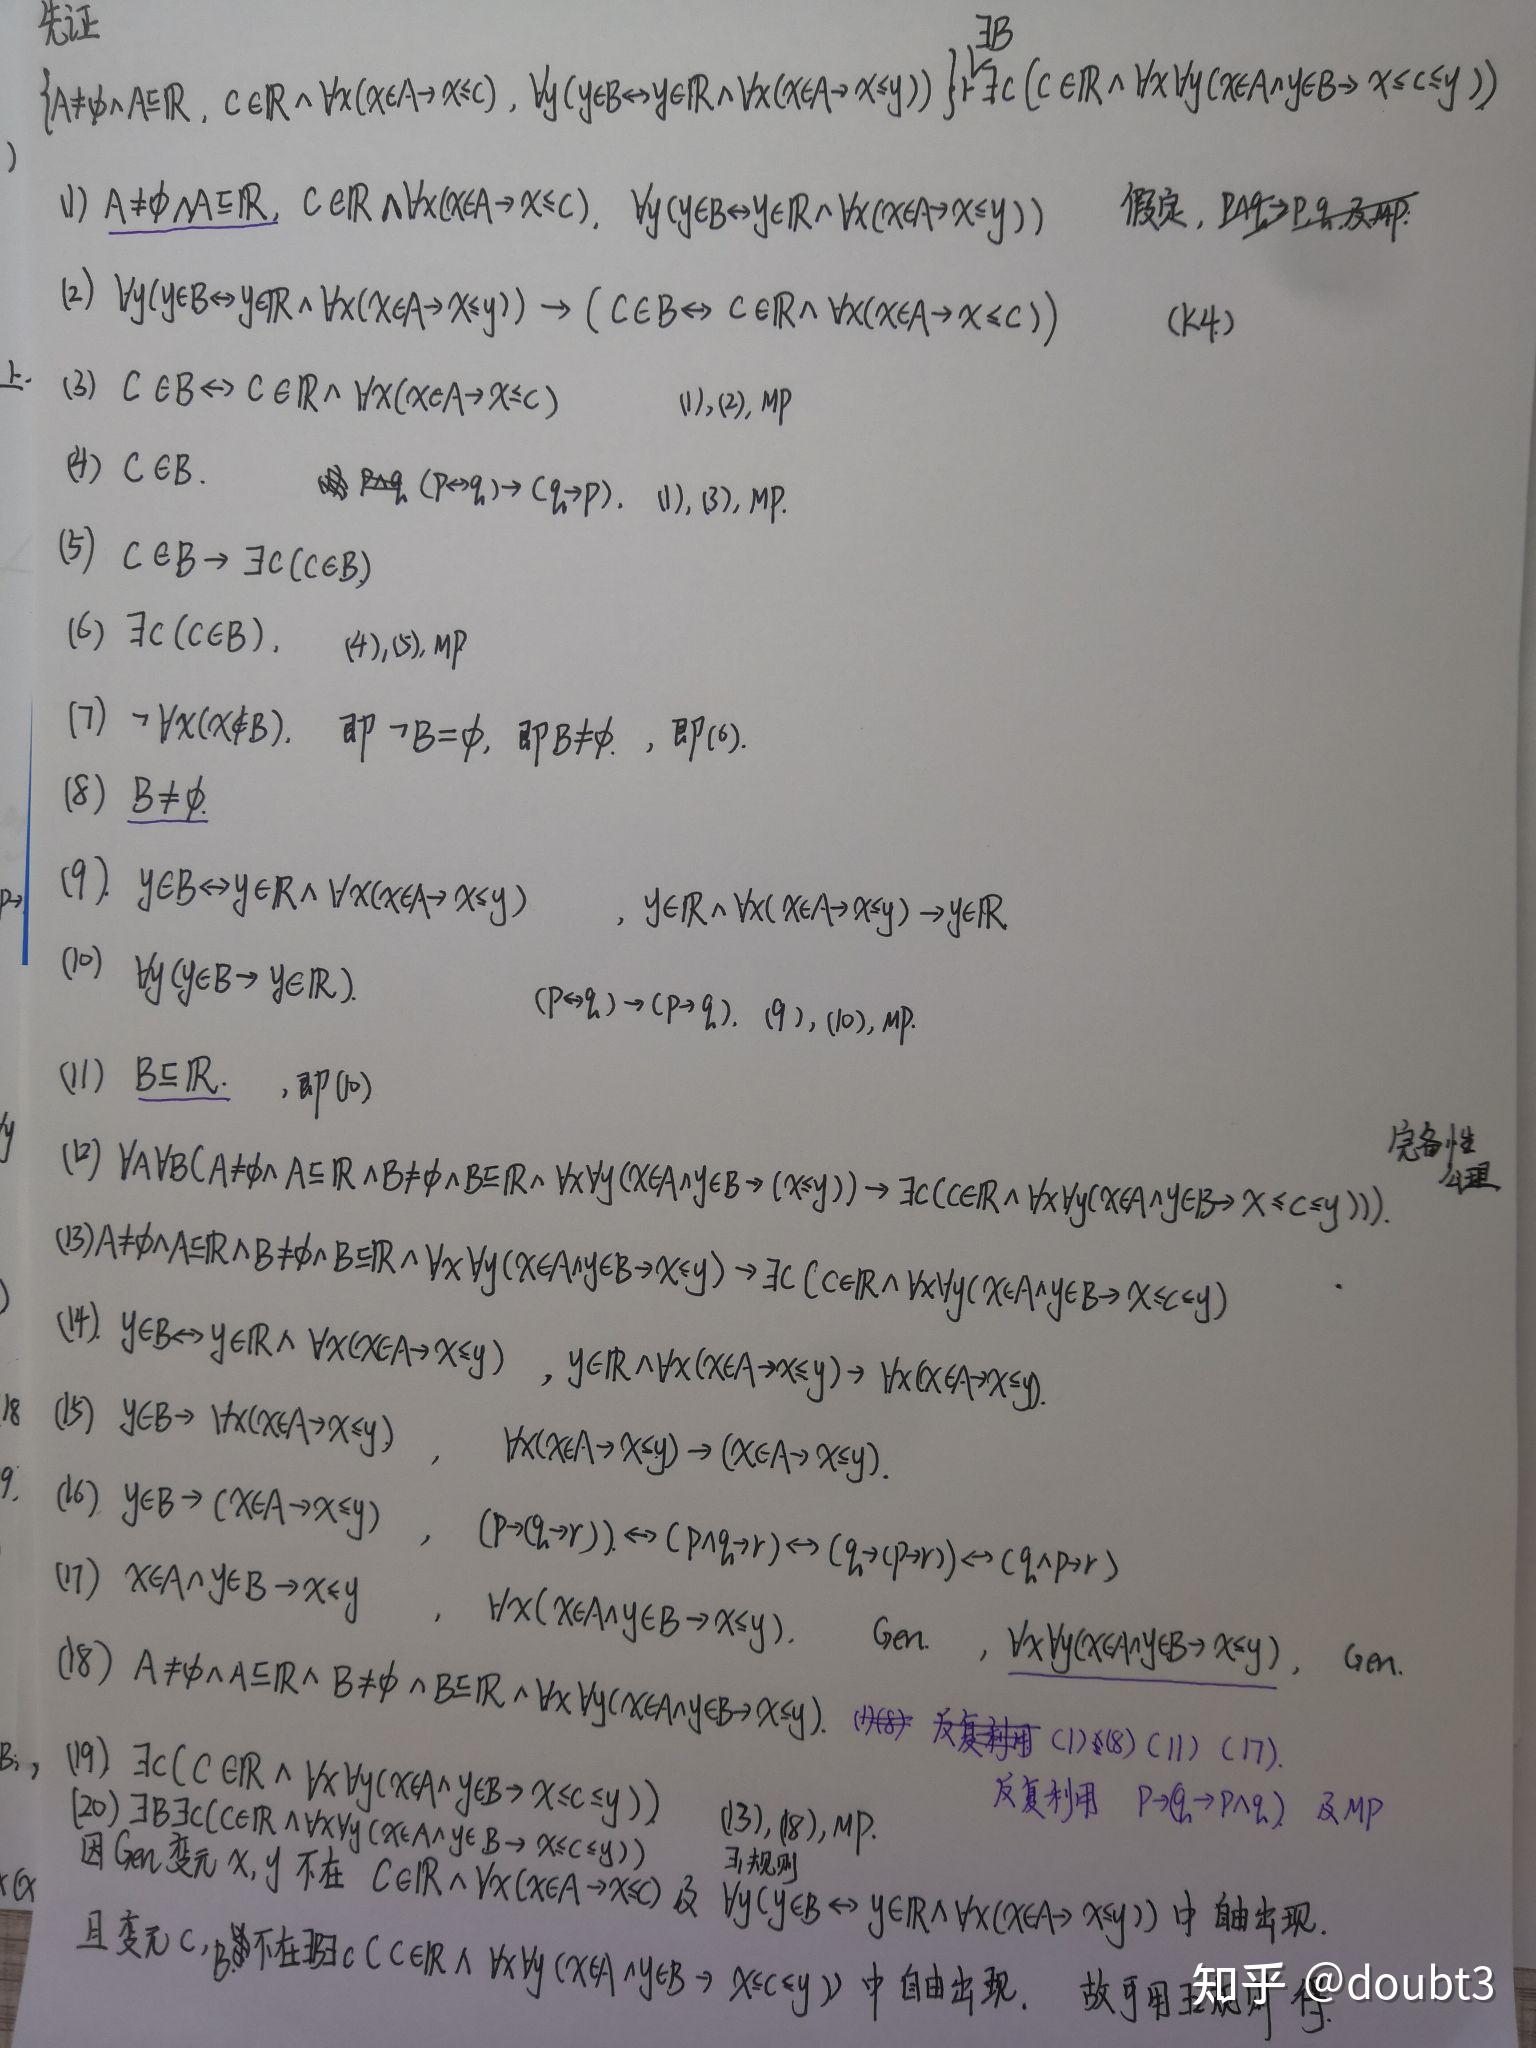 先证
∃B
{A≠∅∧A⊆ℝ, C∈ℝ∧∀x(x∈A→x≤c), ∀y(y∈B↔y∈ℝ∧∀x(x∈A→x≤y))}⊢∃c(c∈ℝ∧∀x∀y(x∈A∧y∈B→x≤c≤y))
(1) A≠∅∧A⊆ℝ, C∈ℝ∧∀x(x∈A→x≤c), ∀y(y∈B↔y∈ℝ∧∀x(x∈A→x≤y)) 假定, p∧q→p,q 及MP.
(2) ∀y(y∈B↔y∈ℝ∧∀x(x∈A→x≤y))→(C∈B↔C∈ℝ∧∀x(x∈A→x≤c)) (K4)
(3) C∈B↔C∈ℝ∧∀x(x∈A→x≤c) (1),(2),MP
(4) C∈B. p∧q (p↔q)→(q→p). (1),(3),MP.
(5) C∈B→∃c(c∈B)
(6) ∃c(c∈B). (4),(5),MP
(7) ¬∀x(x∉B). 即¬B=∅, 即B≠∅. , 即(6).
(8) B≠∅.
(9). y∈B↔y∈ℝ∧∀x(x∈A→x≤y) , y∈ℝ∧∀x(x∈A→x≤y)→y∈ℝ
(10) ∀y(y∈B→y∈ℝ). (p↔q)→(p→q). (9),(10),MP.
(11) B⊆ℝ. , 即(10)
(12) ∀A∀B(A≠∅∧A⊆ℝ∧B≠∅∧B⊆ℝ∧∀x∀y(x∈A∧y∈B→(x≤y))→∃c(c∈ℝ∧∀x∀y(x∈A∧y∈B→x≤c≤y))). 完备性公理
(13) A≠∅∧A⊆ℝ∧B≠∅∧B⊆ℝ∧∀x∀y(x∈A∧y∈B→x≤y)→∃c(c∈ℝ∧∀x∀y(x∈A∧y∈B→x≤c≤y)
(14). y∈B↔y∈ℝ∧∀x(x∈A→x≤y) , y∈ℝ∧∀x(x∈A→x≤y)→∀x(x∈A→x≤y).
(15) y∈B→∀x(x∈A→x≤y) , ∀x(x∈A→x≤y)→(x∈A→x≤y).
(16) y∈B→(x∈A→x≤y) , (p→(q→r))↔(p∧q→r)↔(q→(p→r))↔(q∧p→r)
(17) x∈A∧y∈B→x≤y , ∀x(x∈A∧y∈B→x≤y). Gen. , ∀x∀y(x∈A∧y∈B→x≤y), Gen.
(18) A≠∅∧A⊆ℝ∧B≠∅∧B⊆ℝ∧∀x∀y(x∈A∧y∈B→x≤y). (1)(8) 反复利用 (1)(8)(11)(17).
反复利用 p→(q→p∧q) 及MP
(19) ∃c(c∈ℝ∧∀x∀y(x∈A∧y∈B→x≤c≤y)) (13),(18),MP.
(20) ∃B∃c(c∈ℝ∧∀x∀y(x∈A∧y∈B→x≤c≤y)) ∃₁规则
因Gen变元x,y不在 C∈ℝ∧∀x(x∈A→x≤c) 及 ∀y(y∈B↔y∈ℝ∧∀x(x∈A→x≤y)) 中自由出现.
且变元C,B不在∃B∃c(c∈ℝ∧∀x∀y(x∈A∧y∈B→x≤c≤y)) 中自由出现. 故可用∃₂规则得.
知乎 @doubt3